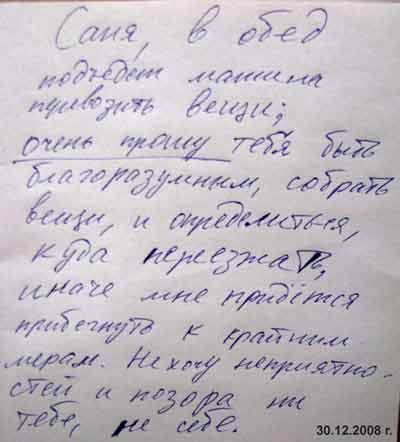 Саня, в обед
подъедет машина
перевозить вещи;
очень прошу тебя быть
благоразумным, собрать
вещи, и определиться,
куда переезжать,
иначе мне придётся
прибегнуть к крайним
мерам. Не хочу неприятно-
стей и позора ни
тебе, не себе.
30.12.2008 г.